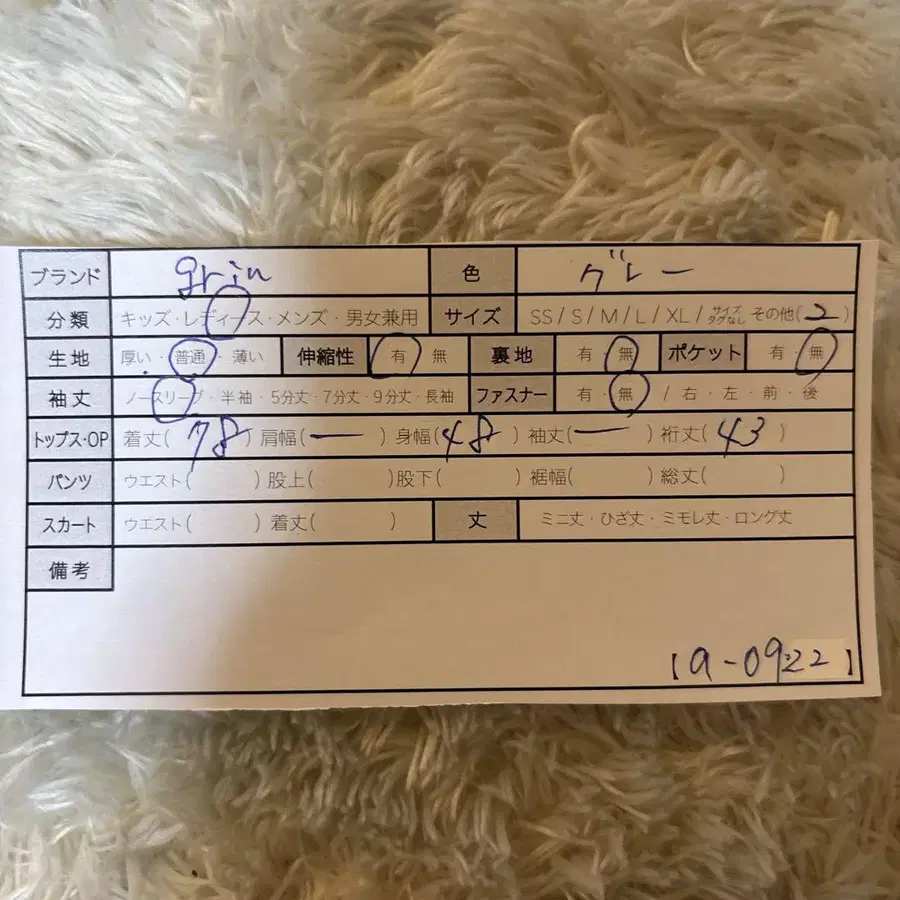 ブランド grin 色 グレー
分類 キッズ・レディース・メンズ・男女兼用 サイズ SS / S / M / L / XL / サイズタグなし その他( 2 )
生地 厚い・普通・薄い 伸縮性 有・無 裏地 有・無 ポケット 有・無
袖丈 ノースリーブ・半袖・5分丈・7分丈・9分丈・長袖 ファスナー 有・無 / 右・左・前・後
トップス・OP 着丈( 78 ) 肩幅( ー ) 身幅( 48 ) 袖丈( ー ) 裄丈( 43 )
パンツ ウエスト( ) 股上( ) 股下( ) 裾幅( ) 総丈( )
スカート ウエスト( ) 着丈( ) 丈 ミニ丈・ひざ丈・ミモレ丈・ロング丈
備考
【a-0922】